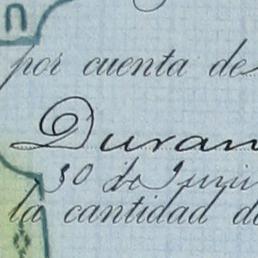 por cuenta de
Duran
30 de Juni
la cantidad d